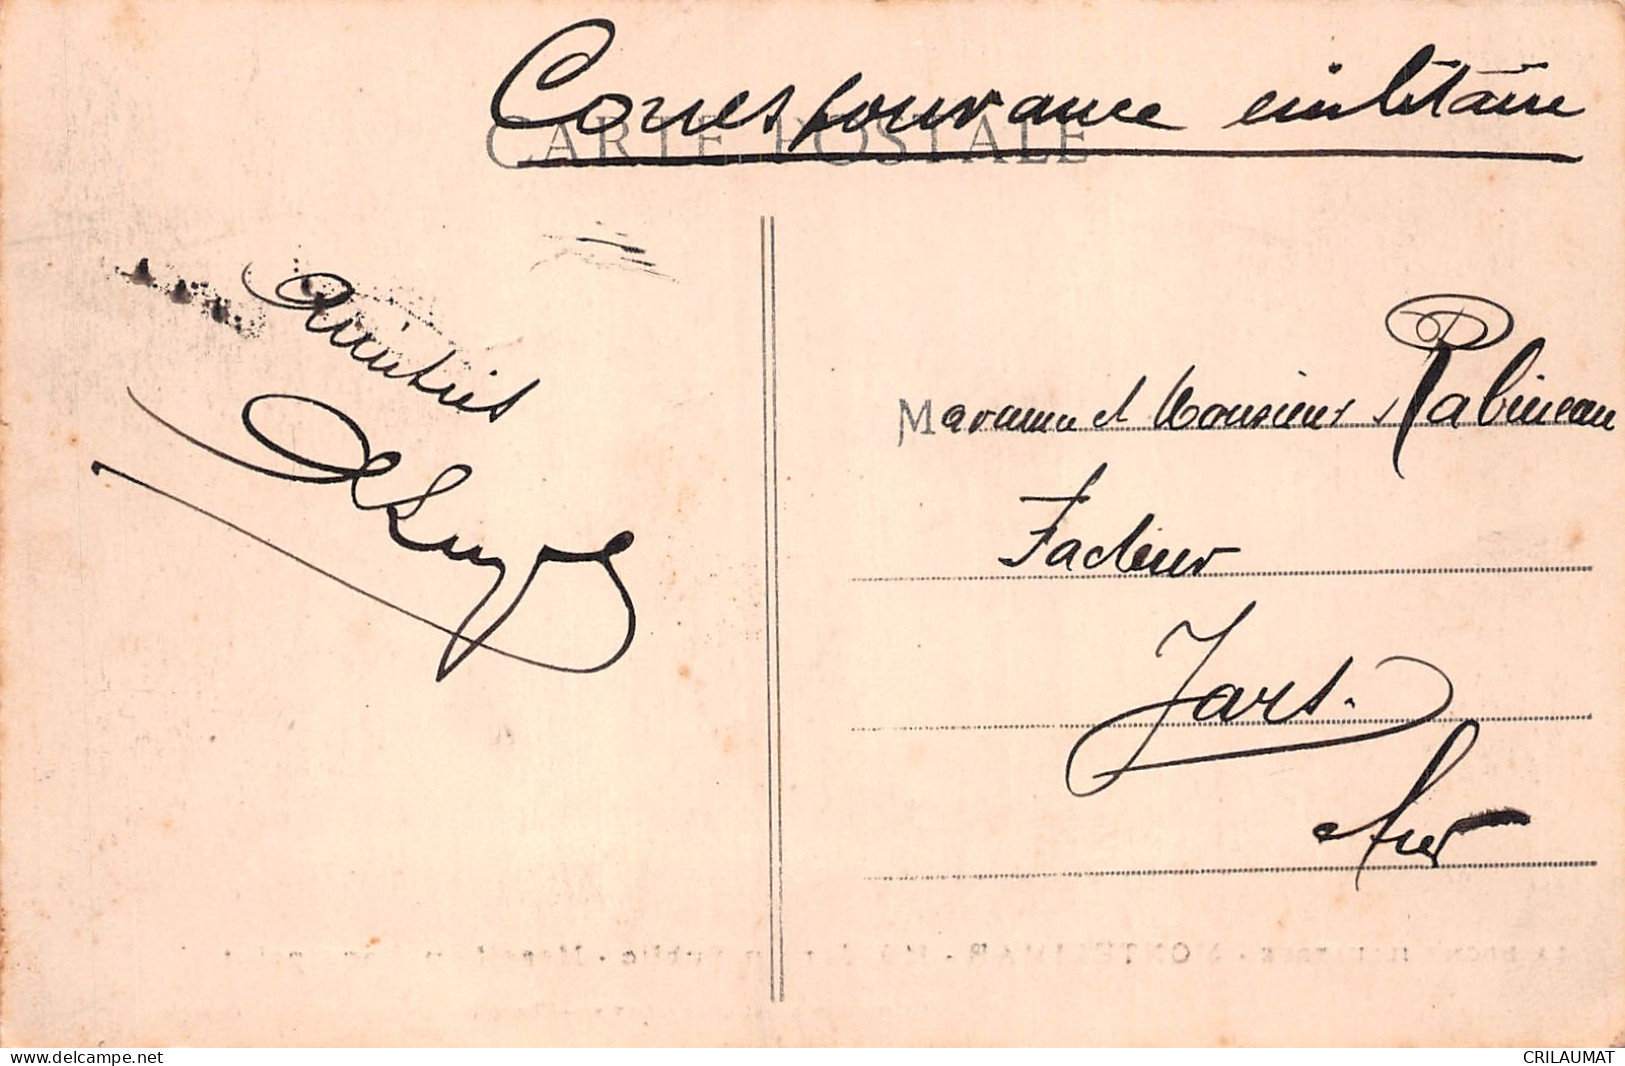 Correspondance militaire
CARTE POSTALE
Amitiés
Madame et Monsieur Rabineau
Facteur
Jars.
Cher
MONTELIMAR
www.delcampe.net
CRILAUMAT